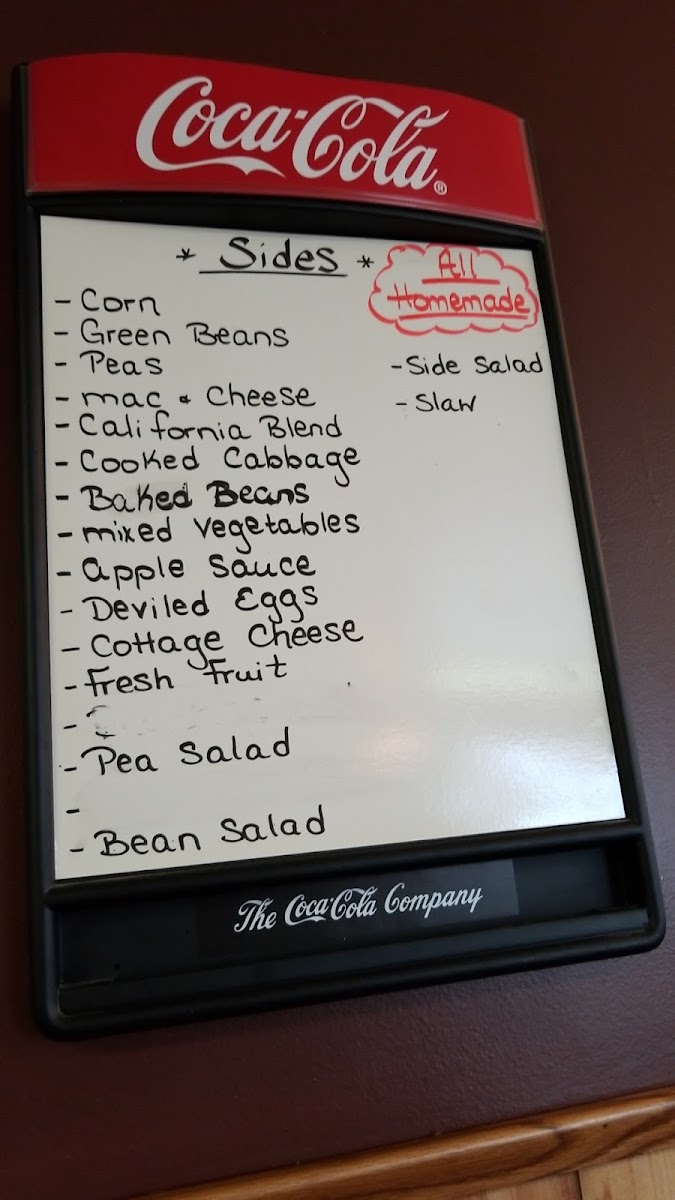 Coca-Cola®
* Sides *
All
Homemade
- Corn
- Green Beans
- Peas
- mac & Cheese
- California Blend
- Cooked Cabbage
- Baked Beans
- mixed vegetables
- apple Sauce
- Deviled Eggs
- Cottage Cheese
- fresh fruit
-
- Pea Salad
-
- Bean Salad
- Side Salad
- Slaw
The Coca-Cola Company